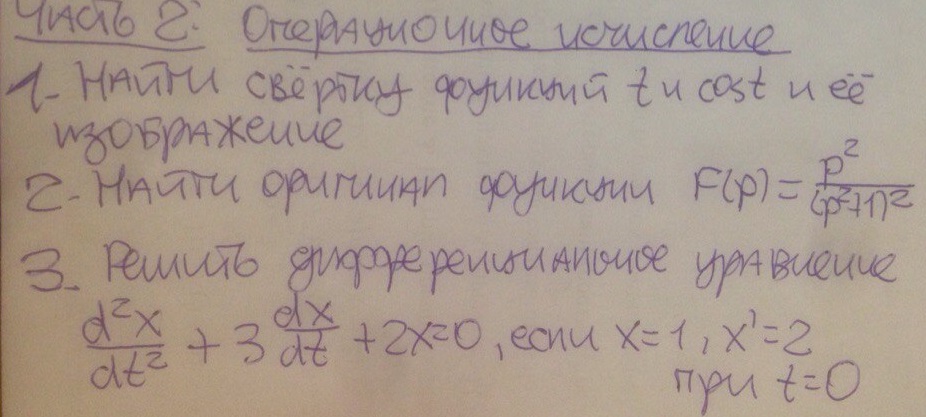 Часть 2: Операционное исчисление
1. Найти свёртку функций t и cost и её
изображение
2. Найти оригинал функции F(p) = p²/(p²+1)²
3. Решить дифференциальное уравнение
d²x/dt² + 3 dx/dt + 2x=0, если x=1, x'=2
при t=0